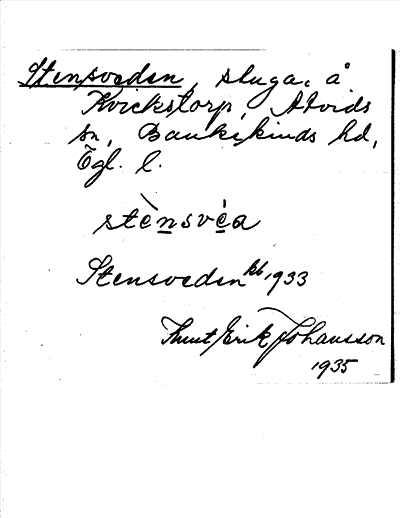 Stensveden, stuga å
Kvickstorp, Åtvids
sn, Bankekinds hd,
Ögl. l.
stènsvèa
Stensveden kb 1933
Knut Erik Johansson
1935